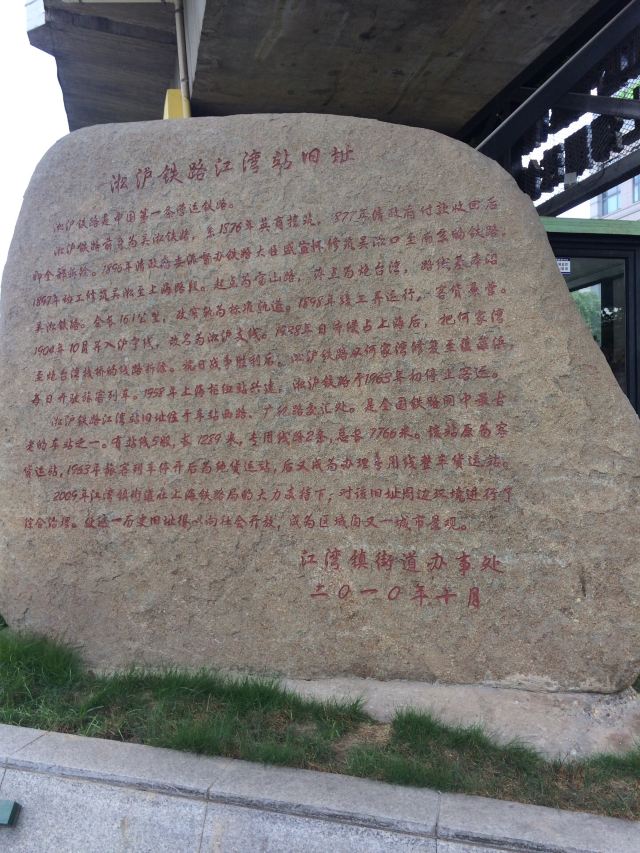 淞沪铁路江湾站旧址
淞沪铁路是中国第一条营运铁路。
淞沪铁路前身为吴淞铁路，至1876年英商擅筑，1877年清政府付款收回后
即全部拆除。1896年清政府委派督办铁路大臣盛宣怀修筑吴淞口至南京的铁路，
1897年动工修筑吴淞至上海路段。起点为宝山路，终点为炮台湾，路线基本沿
吴淞铁路。全长16.1公里，改窄轨为标准轨道。1898年竣工并运行，客货兼营。
1904年10月并入沪宁线，改名为淞沪支线。1938年日军侵占上海后，把何家湾
至炮台湾栈桥的线路拆除。抗日战争胜利后，淞沪铁路从何家湾修复至蕴藻浜，
每日开驶旅客列车。1958年上海枢纽站兴建，淞沪铁路于1963年初停止客运。
淞沪铁路江湾站旧址位于车站西路、广纪路交汇处。是全国铁路网中最古
老的车站之一。有站线5股，长1289米，专用线路2条，总长7766米。该站原为客
货运站，1963年旅客列车停开后为纯货运站，后又成为办理专用线整车货运站。
2009年江湾镇街道在上海铁路局的大力支持下，对该旧址周边环境进行了
综合治理。使这一历史旧址得以向社会开放，成为区域内又一城市景观。
江湾镇街道办事处
二〇一〇年十月